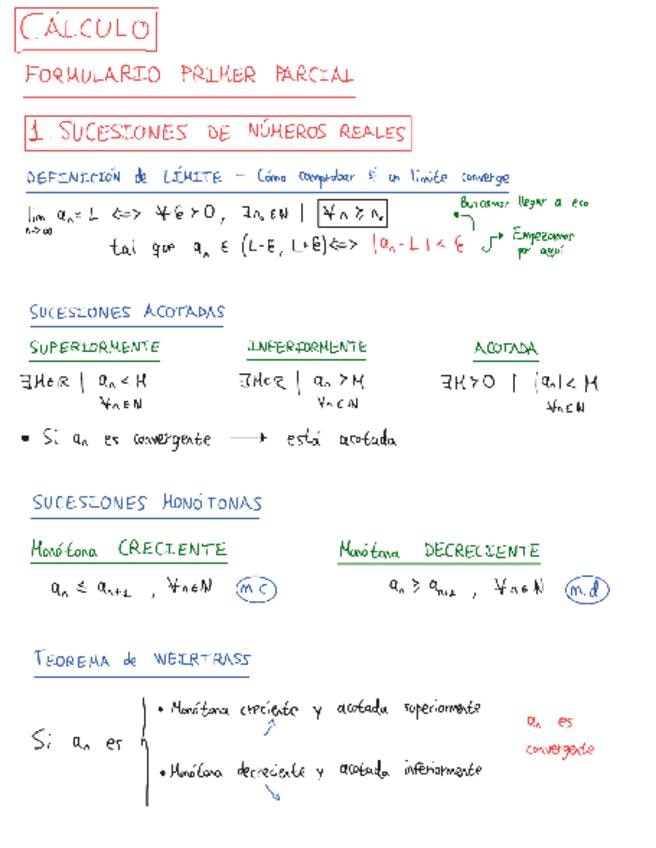 CÁLCULO
FORMULARIO PRIMER PARCIAL
1. SUCESIONES DE NÚMEROS REALES
DEFINICIÓN de LÍMITE - Cómo comprobar si un límite converge
lim aₙ = L <=> ∀ε > 0, ∃n₀ ∈ ℕ | ∀n ≥ n₀
n→∞
Buscamos llegar a eso
tal que aₙ ∈ (L-ε, L+ε) <=> |aₙ - L| < ε
Empezamos
por aquí
SUCESIONES ACOTADAS
SUPERIORMENTE INFERIORMENTE ACOTADA
∃M∈ℝ | aₙ < M ∃M∈ℝ | aₙ > M ∃M>0 | |aₙ| < M
∀n∈ℕ ∀n∈ℕ ∀n∈ℕ
• Si aₙ es convergente → está acotada
SUCESIONES MONÓTONAS
Monótona CRECIENTE Monótona DECRECIENTE
aₙ ≤ aₙ₊₁ , ∀n∈ℕ m.c aₙ ≥ aₙ₊₁ , ∀n∈ℕ m.d
TEOREMA de WEIRTRASS
• Monótona creciente y acotada superiormente
Si aₙ es
aₙ es
convergente
• Monótona decreciente y acotada inferiormente